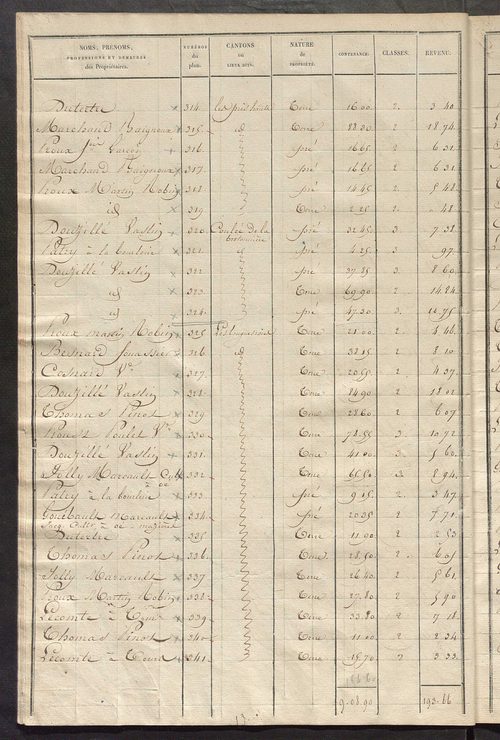 NOMS, PRÉNOMS, PROFESSIONS ET DEMEURES des Propriétaires. NUMÉROS du plan. CANTONS ou LIEUX DITS. NATURE de PROPRIÉTÉ. CONTENANCE. CLASSES. REVENU.
Dutertre × 314 Les prés hauts Terre 16 00 2 3 40
Marchand Baigneux × 315 id Terre 88 30 2 18 74
Proux × 316 pré 16 65 2 6 31
Marchand Baigneux × 317 pré 16 65 2 6 31
Proux Martin Robin × 318 pré 14 45 2 5 48
id × 319 Terre 2 25 2 48
Douzillé Vaslin × 320 pré 32 45 3 7 38
Patry à la × 321 pré 4 25 3 97
Douzillé Vaslin × 322 pré 37 85 3 8 60
id × 323 Terre 69 90 2 14 84
id × 324 pré 47 30 3 11 75
Proux Martin Robin × 325 Terre 21 00 2 4 46
Besnard × 326 id Terre 38 15 2 8 10
Cosnard Ve × 327 Terre 20 55 2 4 37
Douzillé Vaslin × 328 Terre 84 90 2 18 02
Thomas Pinot × 329 Terre 28 60 2 6 07
Poulet Ve × 330 Terre 78 55 3 10 72
Douzillé Vaslin × 331 Terre 41 00 3 5 60
Jolly Marcault × 332 Terre 65 50 3 8 94
Patry à la × 333 pré 9 15 2 3 47
Marcault × 334 pré 20 35 2 7 71
Dutertre × 335 Terre 11 90 2 2 53
Thomas Pinot × 336 Terre 28 50 2 6 05
Jolly Marcault × 337 Terre 26 40 2 5 61
Proux Martin Robin × 338 Terre 27 80 2 5 90
Lecomte à × 339 Terre 33 80 2 7 18
Thomas Pinot × 340 Terre 11 00 2 2 34
Lecomte à × 341 Terre 15 70 2 3 33
9 08 90 193 66